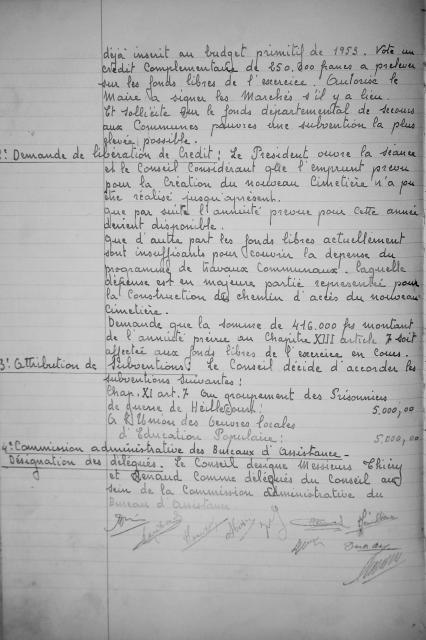 déjà inscrit au budget primitif de 1953. Vote un
crédit complémentaire de 250.000 francs à prélever
sur les fonds libres de l'exercice. Autorise le
Maire à signer les Marchés s'il y a lieu.
Et sollicite sur le fonds départemental de secours
aux Communes pauvres une subvention la plus
élevée possible.
2° Demande de libération de Crédit: Le President ouvre la séance
et le Conseil Considérant que l'emprunt prévu
pour la Création du nouveau Cimetière n'a pu
être réalisé jusqu'àprésent.
que par suite l'annuité prévue pour cette année
devient disponible.
que d'autre part les fonds libres actuellement
sont insuffisants pour couvrir la dépense du
programme de travaux Communaux. laquelle
dépense est en majeure partie représentée pour
la Construction du chemin d'accès du nouveau
Cimetière.
Demande que la somme de 416.000 frs montant
de l'annuité prévue au Chapitre XIII article 7 soit
affectée aux fonds libres de l'exercice en Cours.
3° Attribution de Subventions: Le Conseil décide d'accorder les
subventions suivantes:
Chap. XI art. 7 Au groupement des Prisonniers
de guerre de Heillecourt: 5.000,00
A l'Union des Oeuvres locales
d'Education Populaire: 5.000,00
4° Commission administrative des Bureaux d'Assistance -
Désignation des délégués. Le Conseil désigne Messieurs Thiéry
et Renaud Comme délégués du Conseil au
sein de la Commission administrative du
Bureau d'Assistance